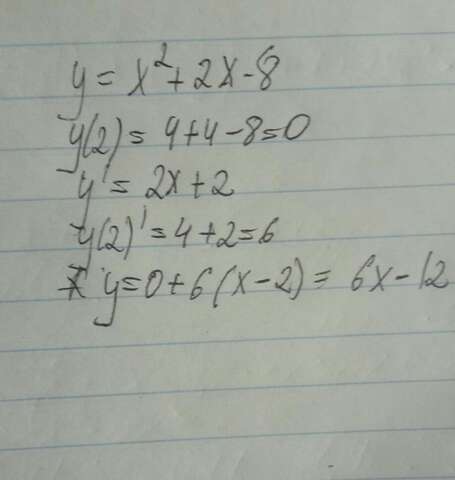 y = x² + 2x - 8
y(2) = 4 + 4 - 8 = 0
y' = 2x + 2
y(2)' = 4 + 2 = 6
y = 0 + 6(x - 2) = 6x - 12